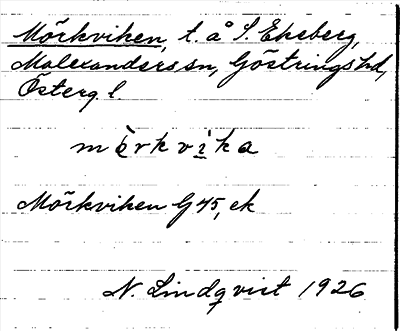 Mörkviken, t. å S. Ekeberg,
Malexanders sn, Göstrings hd,
Österg. l.
mö̀rkvi̱ka
Mörkviken G 45, ek
N. Lindqvist 1926